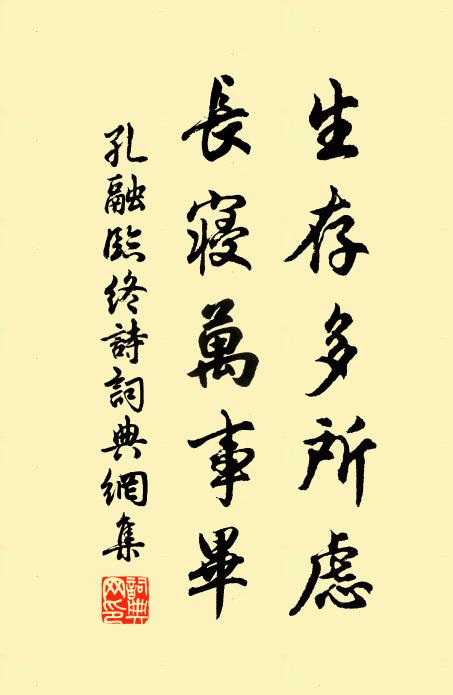 生存多所慮
長寝萬事畢
孔融臨終詩詞典網集
詞典網印